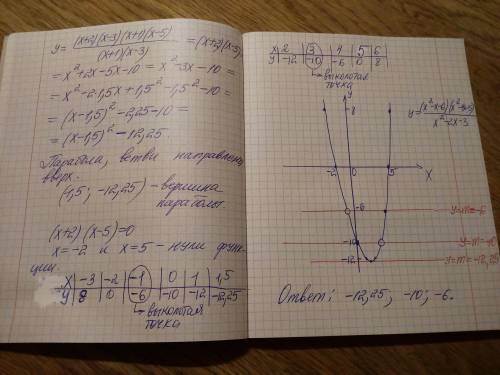 y = (x+2)(x-3)(x+1)(x-5) / (x+1)(x-3) = (x+2)(x-5)
= x² + 2x - 5x - 10 = x² - 3x - 10 =
= x² - 2·1,5x + 1,5² - 1,5² - 10 =
= (x - 1,5)² - 2,25 - 10 =
= (x - 1,5)² - 12,25.
Парабола, ветви направлены
вверх.
(1,5; -12,25) - вершина
параболы.
(x+2)(x-5)=0
x = -2 и x = 5 - нули функ-
ции.
x | -3 | -2 | -1 | 0 | 1 | 1,5
y | 8 | 0 | -6 | -10 | -12 | -12,25
выколотая
точка
x | 2 | 3 | 4 | 5 | 6
y | -12 | -10 | -6 | 0 | 8
выколотая
точка
y
8
y = (x²-x-6)(x²-4x-5) / x²-2x-3
-2 0 5 X
-6 y=m=-6
-10 y=m=-10
-12 y=m=-12,25
Ответ: -12,25; -10; -6.